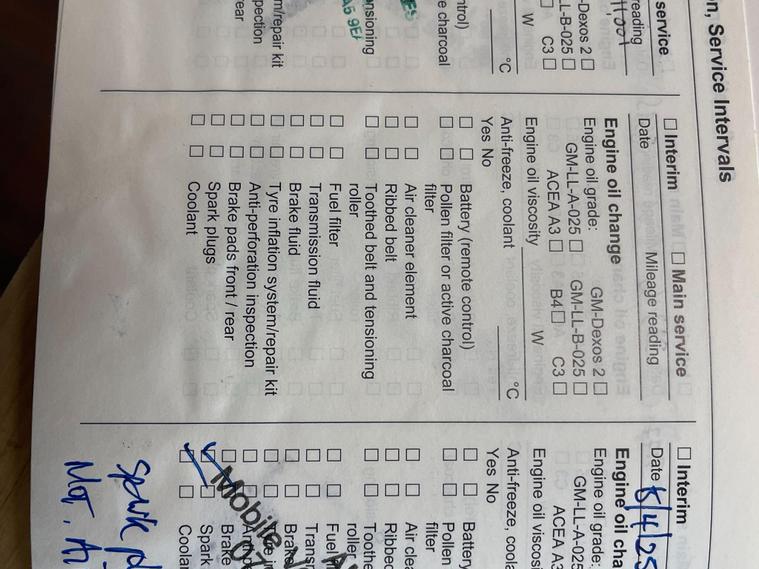 n, Service Intervals
service
reading
Dexos 2 ☐
LL-B-025 ☐
C3 ☐
W
°C
ntrol)
e charcoal
nsioning
m/repair kit
pection
ear
☐ Interim ☐ Main service
Date Mileage reading
Engine oil change
Engine oil grade: GM-Dexos 2 ☐
GM-LL-A-025 ☐ GM-LL-B-025 ☐
ACEA A3 ☐ B4 ☐ C3 ☐
Engine oil viscosity W
Anti-freeze, coolant °C
Yes No
☐ ☐ Battery (remote control)
☐ ☐ Pollen filter or active charcoal
filter
☐ ☐ Air cleaner element
☐ ☐ Ribbed belt
☐ ☐ Toothed belt and tensioning
roller
☐ ☐ Fuel filter
☐ ☐ Transmission fluid
☐ ☐ Brake fluid
☐ ☐ Tyre inflation system/repair kit
☐ ☐ Anti-perforation inspection
☐ ☐ Brake pads front / rear
☐ ☐ Spark plugs
☐ ☐ Coolant
☐ Interim
Date /4/25
Engine oil cha
Engine oil grade:
GM-LL-A-025
ACEA A3
Engine oil viscosi
Anti-freeze, coola
Yes No
☐ ☐ Battery
☐ ☐ Pollen
filter
☐ ☐ Air clea
☐ ☐ Ribbed
☐ ☐ Toothe
roller
☐ ☐ Fuel
☐ ☐ Trans
☐ ☐ Brak
☐ ☐ Brake
☐ ☐ Spark
☐ ☐ Coolan
Mobile
07
Spark pl
MOT, Ai